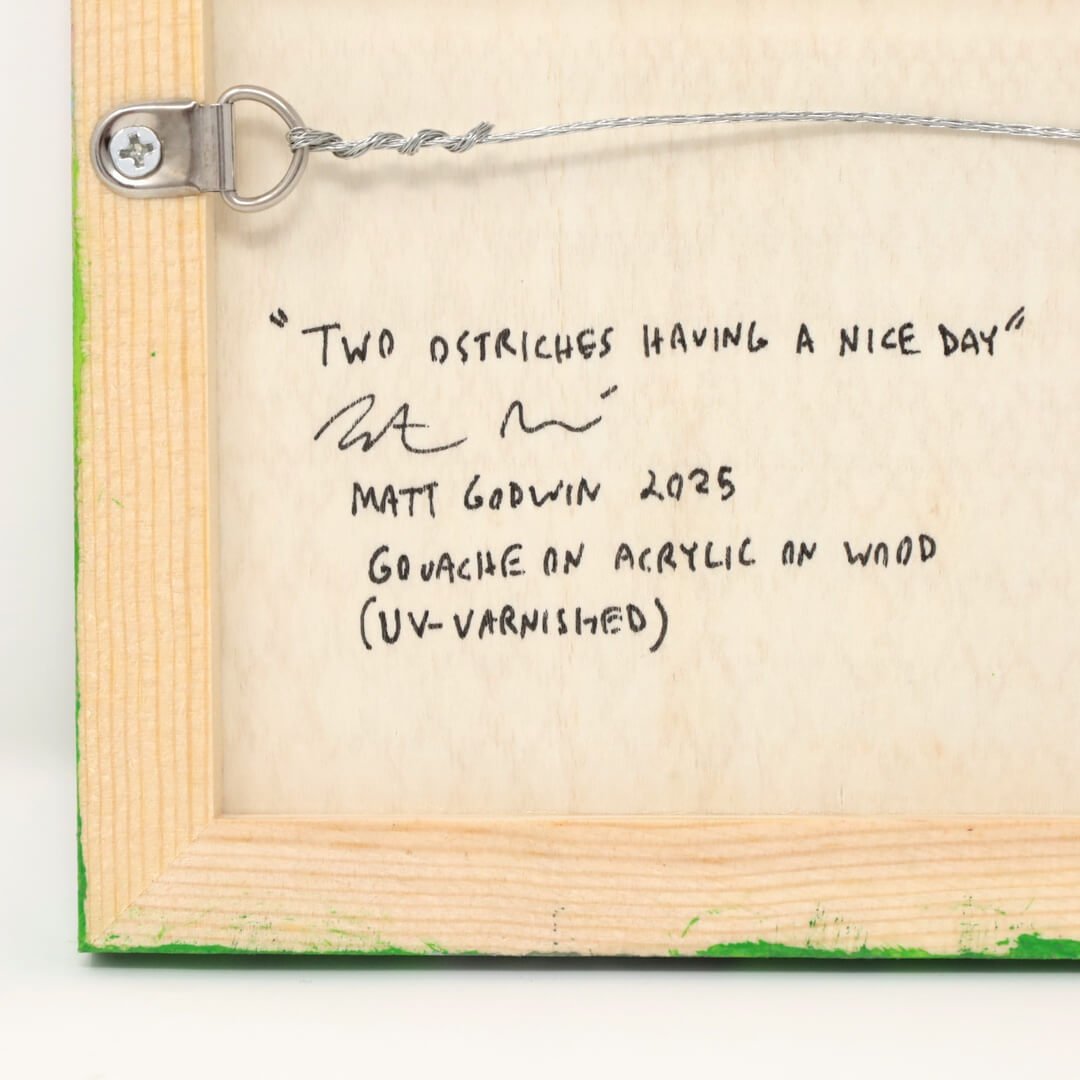 "TWO OSTRICHES HAVING A NICE DAY"
MATT GODWIN 2025
GOUACHE ON ACRYLIC ON WOOD
(UV-VARNISHED)